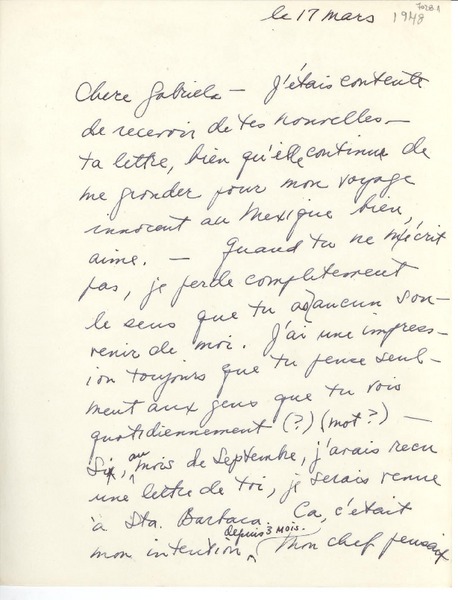 le 17 mars 1948
7028 A
Chere Gabriela — J'étais contente
de recevoir de tes nouvelles —
ta lettre, bien qu'elle continue de
me gronder pour mon voyage
innocent au Mexique bien
aimé. — Quand tu ne m'écrit
pas, je perde completement
le sens que tu as aucun sou-
venir de moi. J'ai une impress-
ion toujours que tu pense seul-
ment aux gens que tu vois
quotidiennement (?) (mot?) —
Si, au mois de Septembre, j'avais recu
une lettre de toi, je serais venue
à Sta. Barbara. Ca, c'était
mon intention depuis 3 mois. Mon chef pensait